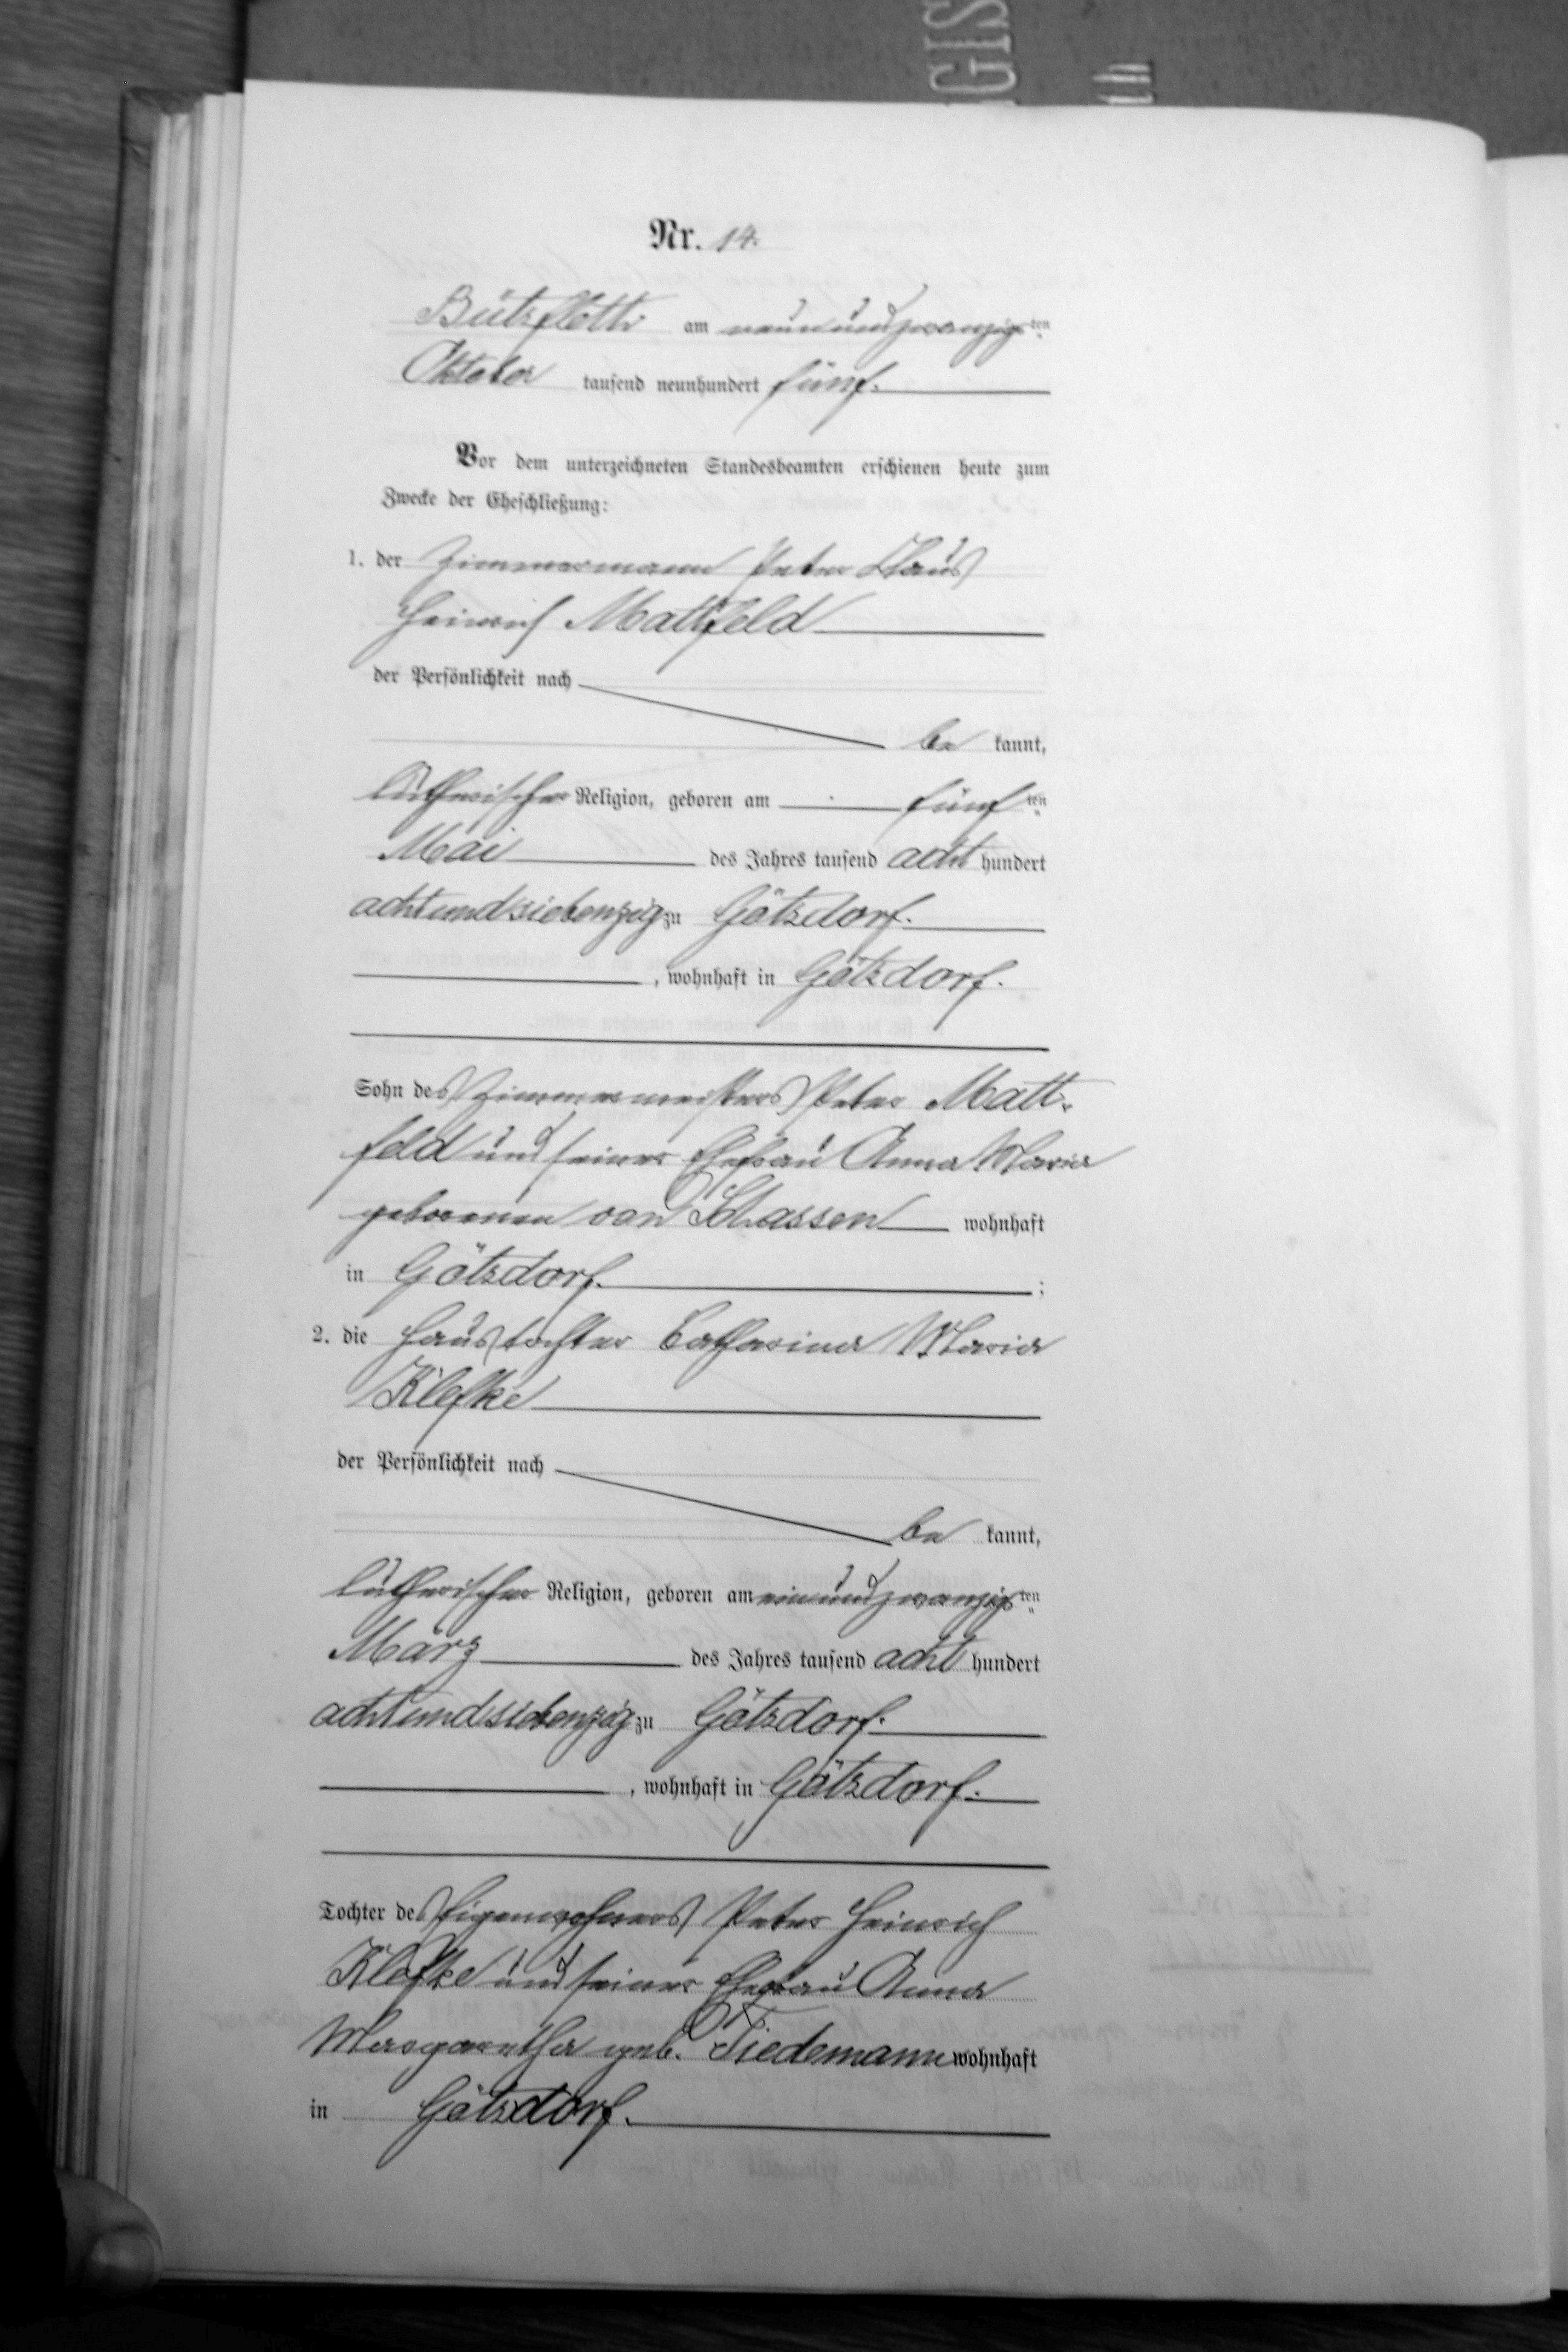 GIS
ch
Nr. 14.
Bützfleth am neunundzwanzigsten
Oktober tausend neunhundert fünf.
Vor dem unterzeichneten Standesbeamten erschienen heute zum
Zwecke der Eheschließung:
1. der Zimmermann Peter Claus
Heinrich Mattfeld
der Persönlichkeit nach
be kannt,
lutherischer Religion, geboren am fünf ten
Mai des Jahres tausend acht hundert
achtundsiebenzig zu Götzdorf.
, wohnhaft in Götzdorf.
Sohn des Zimmermeisters Peter Matt-
feld und seiner Ehefrau Anna Maria
geborenen von Schassen wohnhaft
in Götzdorf. ;
2. die Haustochter Catharina Maria
Klefke
der Persönlichkeit nach
be kannt,
lutherischer Religion, geboren am einundzwanzigsten
März des Jahres tausend acht hundert
achtundsiebenzig zu Götzdorf.
, wohnhaft in Götzdorf.
Tochter des Eigenwohners Peter Heinrich
Klefke und seiner Ehefrau Anna
Margaretha geb. Tiedemann wohnhaft
in Götzdorf.